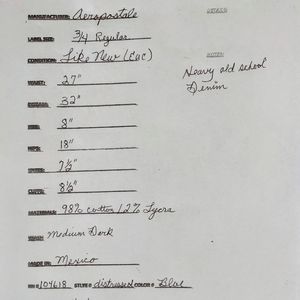 MANUFACTURER: Aeropostale
DETAILS:
LABEL SIZE: 3/4 Regular
CONDITION: Like New (EUC)
NOTES:
WAIST: 27"
Heavy old school
Denim
INSEAM: 32"
RISE: 8"
HIPS: 18"
THIGH: 7½"
CUFFS: 8½"
MATERIALS: 98% cotton / 2% Lycra
WASH: Medium Dark
MADE IN: Mexico
RN # 104618 STYLE # distressed COLOR # Blue